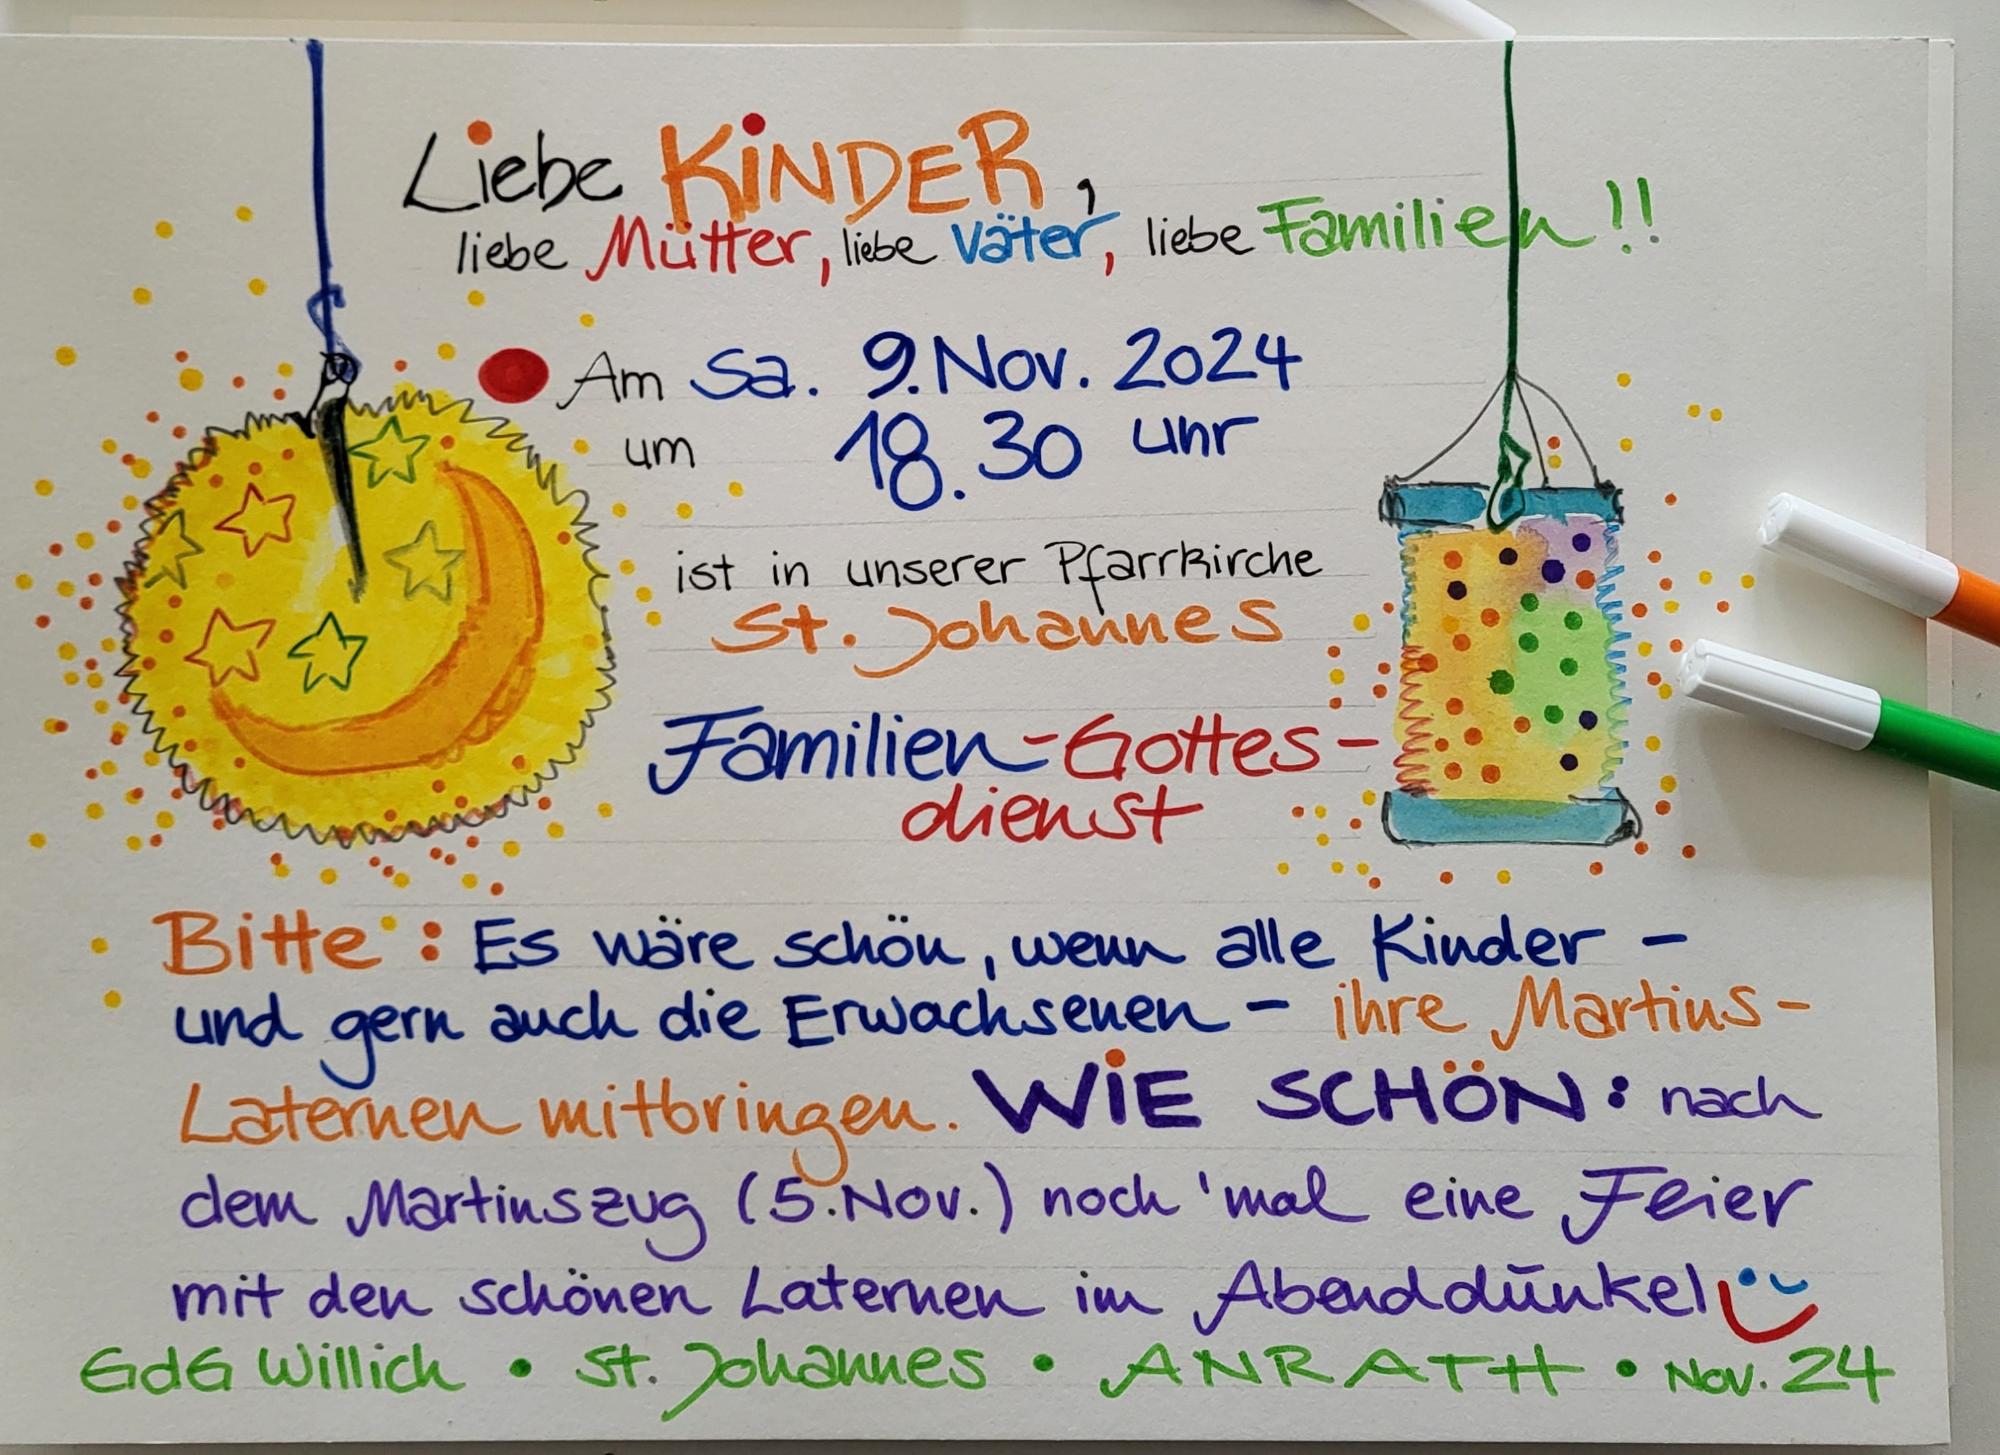 Liebe KiNDER,
liebe Mütter, liebe Väter, liebe Familien!!
Am Sa. 9. Nov. 2024
um 18.30 Uhr
ist in unserer Pfarrkirche
St. Johannes
Familien-Gottes-
dienst
Bitte: Es wäre schön, wenn alle Kinder -
und gern auch die Erwachsenen - ihre Martins-
Laternen mitbringen. WiE SCHÖN: nach
dem Martinszug (5. Nov.) noch 'mal eine Feier
mit den schönen Laternen im Abenddunkel
GdG Willich • St. Johannes • ANRATH • Nov. 24